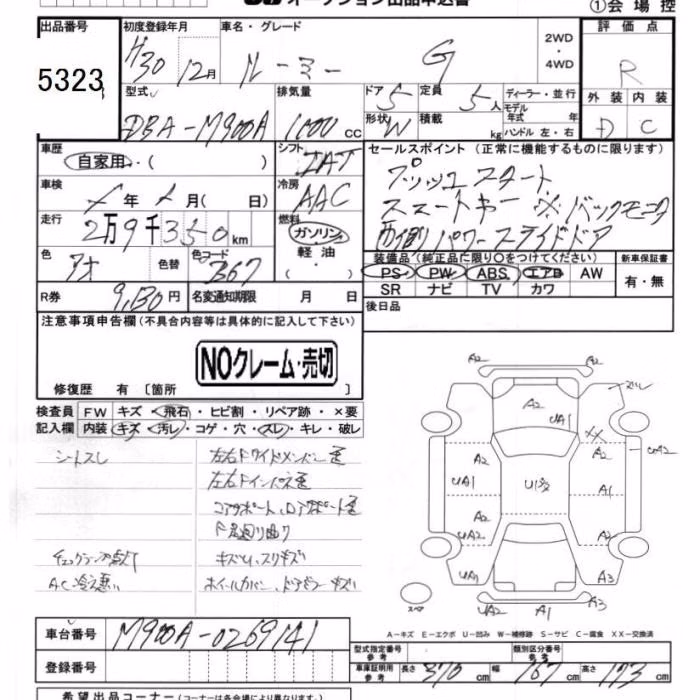 オークション出品申込書
①会場控
出品番号 初度登録年月 車名・グレード 2WD・4WD 評価点
5323 H30 12月 ルーミー G R
型式 排気量 ドア 5 定員 5人 ディーラー・並行 外装 内装
DBA-M900A 1000cc 形状 W 積載 kg モデル年式 年式 ハンドル 左・右 D C
車歴 自家用・( ) シフト IAT セールスポイント (正常に機能するものに限ります)
車検 年 月( 日) 冷房 AAC プッシュスタート
スマートキー ※バックモニタ
走行 2万9千350km 燃料 ガソリン・軽油・( ) 両側パワースライドドア
色 アオ 色替 色コード B67 装備品(純正品に限り○をつけてください) 新車保証書
PS PW ABS エアB AW 有・無
SR ナビ TV カワ
R券 9,130円 名変通知期限 月 日 後日品
注意事項申告欄(不具合内容等は具体的に記入して下さい)
NOクレーム・売切
修復歴 有 〔箇所 〕
検査員 FW キズ・飛石・ヒビ割・リペア跡・×要
記入欄 内装 キズ・汚レ・コゲ・穴・スレ・キレ・破レ
シートスレ
左右Fインパネ歪
コアサポート、
F足廻り曲り
チェックランプ点灯 キズU、スリキズ
AC冷え悪い ホイールカバー、ドアミラーキズ
A2 A2
A2 UA1 XX
A2 A2 UA2
UA1 U1 A1
A2 A2
UA2
UA1 A3
スペア A2 A1 A3
A-キズ E-エクボ U-凹み W-補修跡 S-サビ C-腐食 XX-交換済
車台番号 M900A-0269141
型式指定番号 参考 類別区分番号 参考
登録番号 車庫証明用 参考 長さ 370cm 幅 167cm 高さ 173cm
希望出品コーナー(コーナーは各会場により異なります)